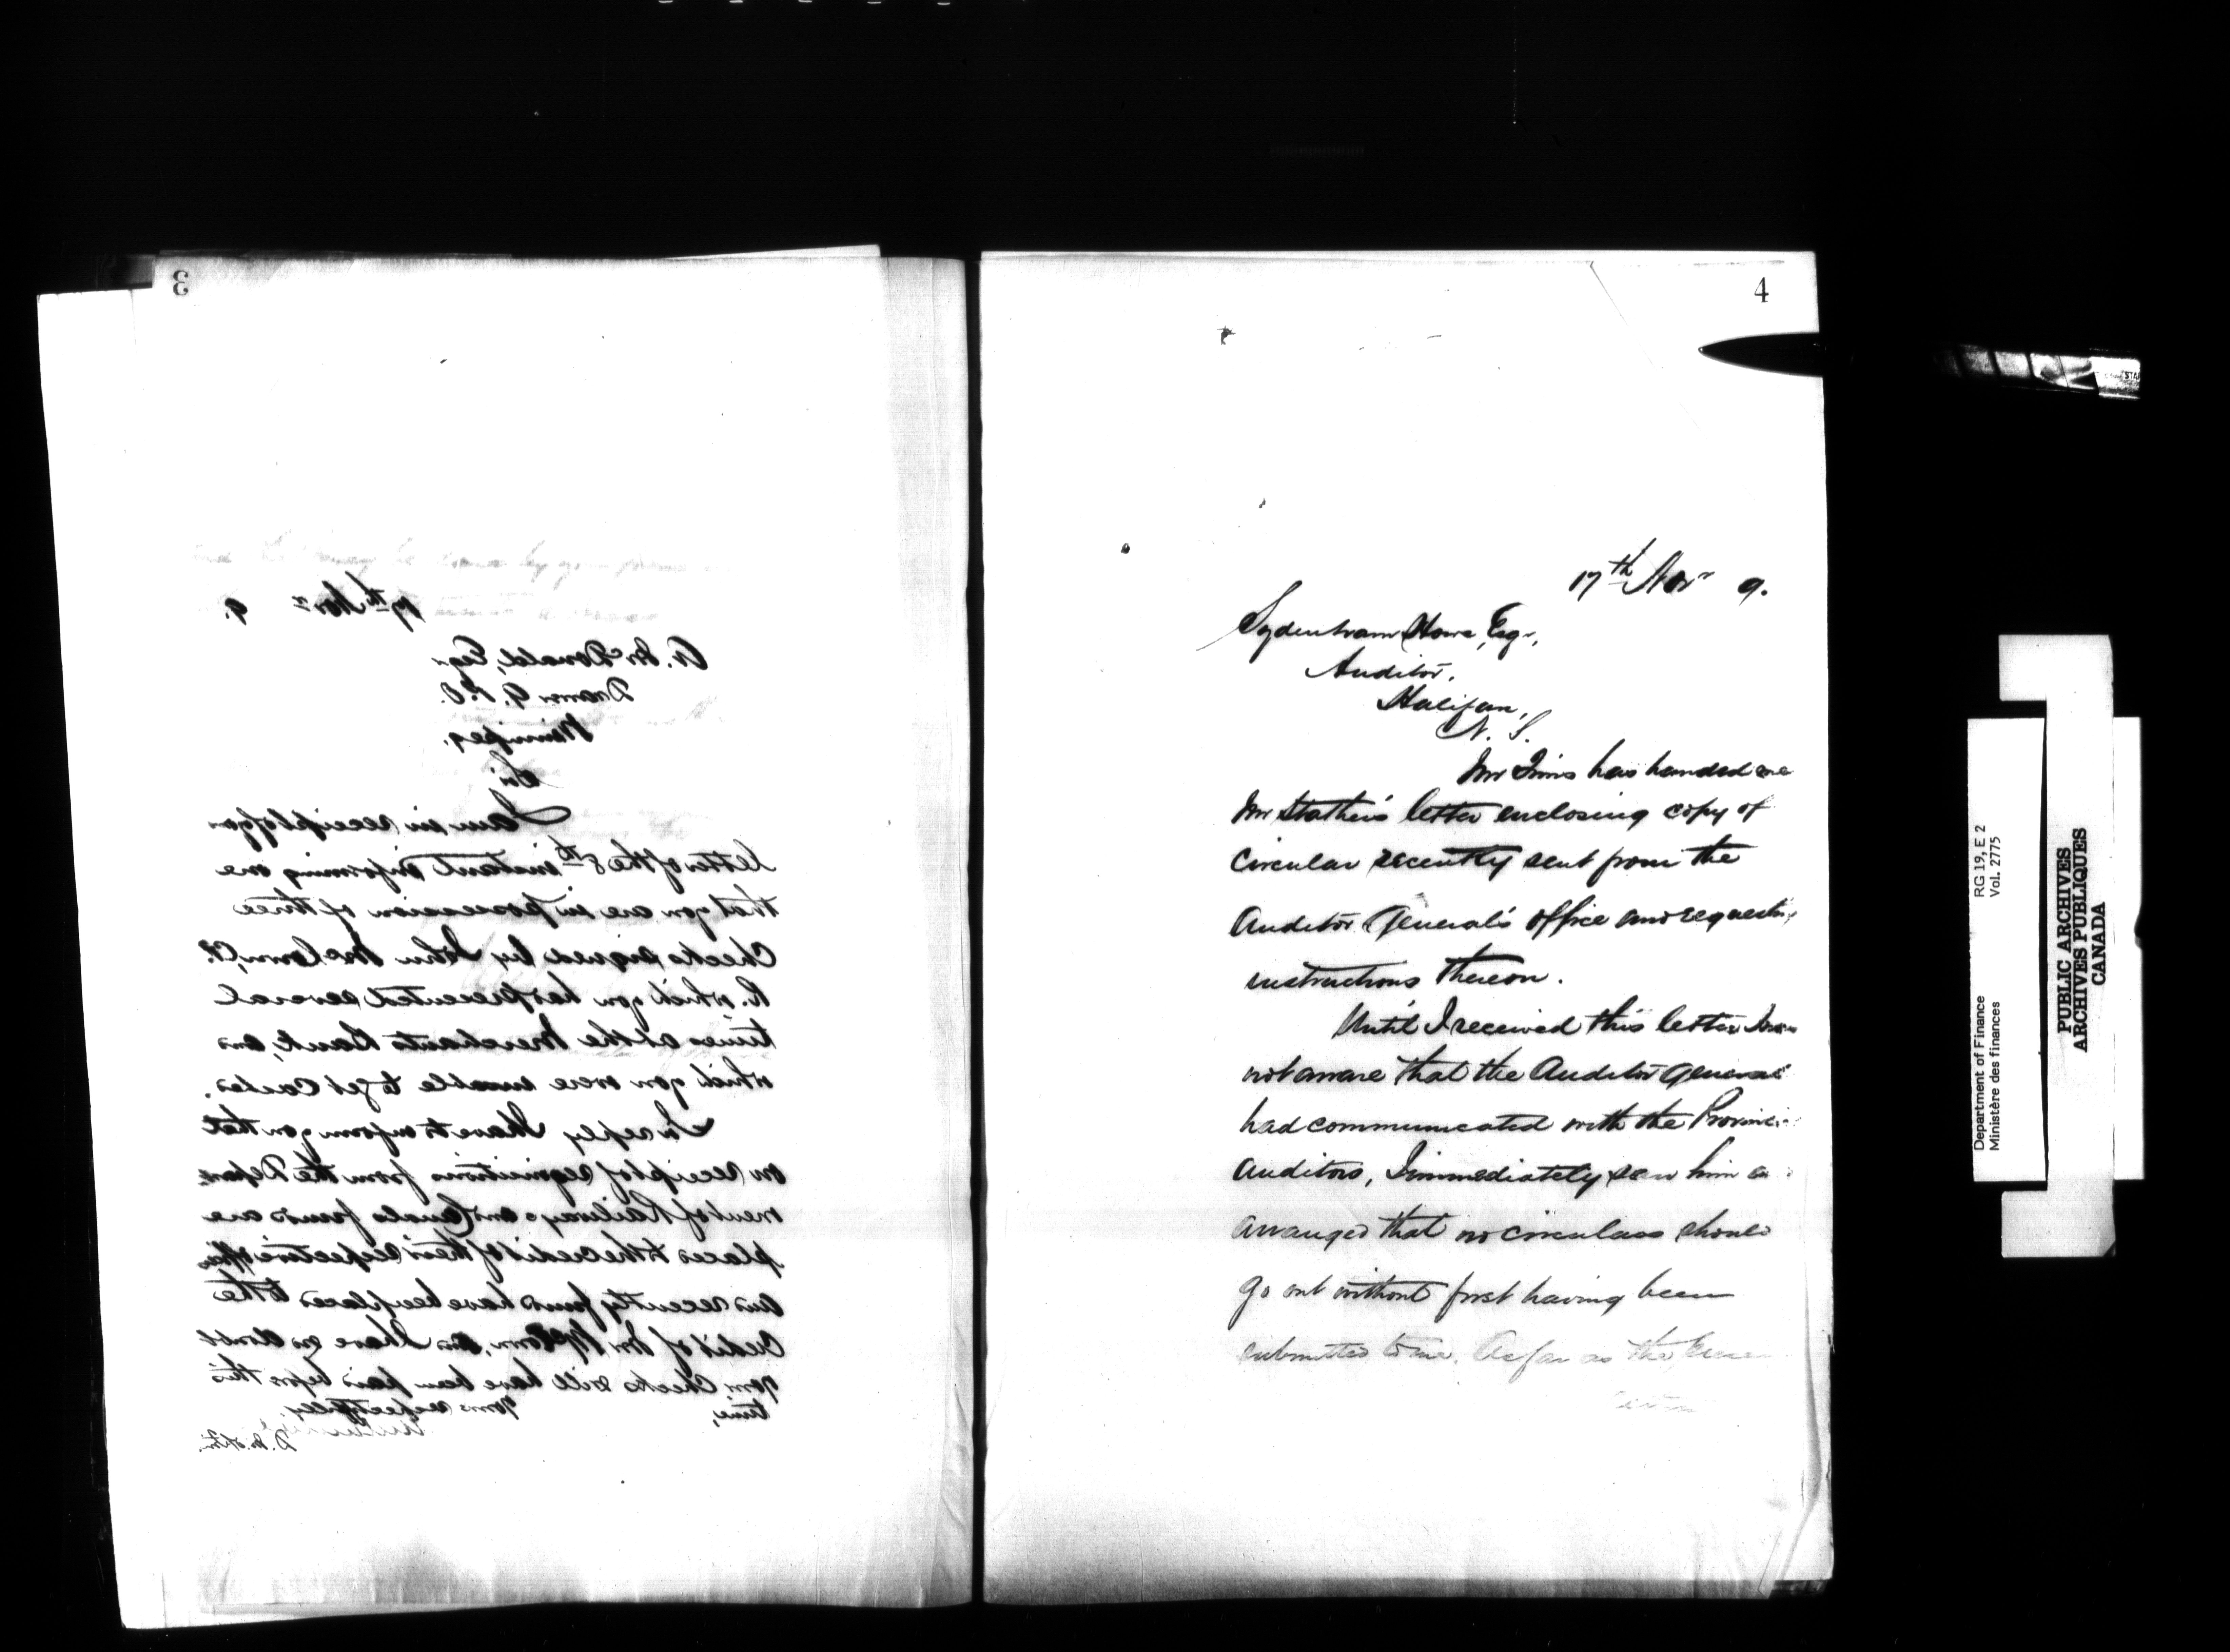 3
17th Novr 9.
A. McDonald, Esqr
Drawer 9, P.O.
Winnipeg.
Sir
I am in receipt of your
letter of the 8th instant informing me
that you are in possession of three
Checks signed by John
which you has presented several
times at the Merchants Bank, and
which you were unable to get cashed.
In reply I have to inform you that
on receipt of requisitions from the Depart
ment of Railways and Canals funds are
placed to the credit of their respective offices
and recently funds have been placed to the
Credit of Mr and I have no doubt
your Checks will have been paid before this
time,
Yours respectfully
D. M. of Fin.
4
17th Novr 9.
Sydenham Howe, Esqr,
Auditor,
Halifax,
N. S.
Mr Tims has handed me
Mr letter enclosing copy of
circular recently sent from the
Auditor General's office and requesting
instructions thereon.
Until I received this letter I was
not aware that the Auditor General
had communicated with the
Auditors, I immediately saw him
arranged that no circulars should
go out without first having been
submitted to me. As far as the
Department of Finance
Ministère des finances
RG 19, E 2
Vol. 2775
PUBLIC ARCHIVES
ARCHIVES PUBLIQUES
CANADA